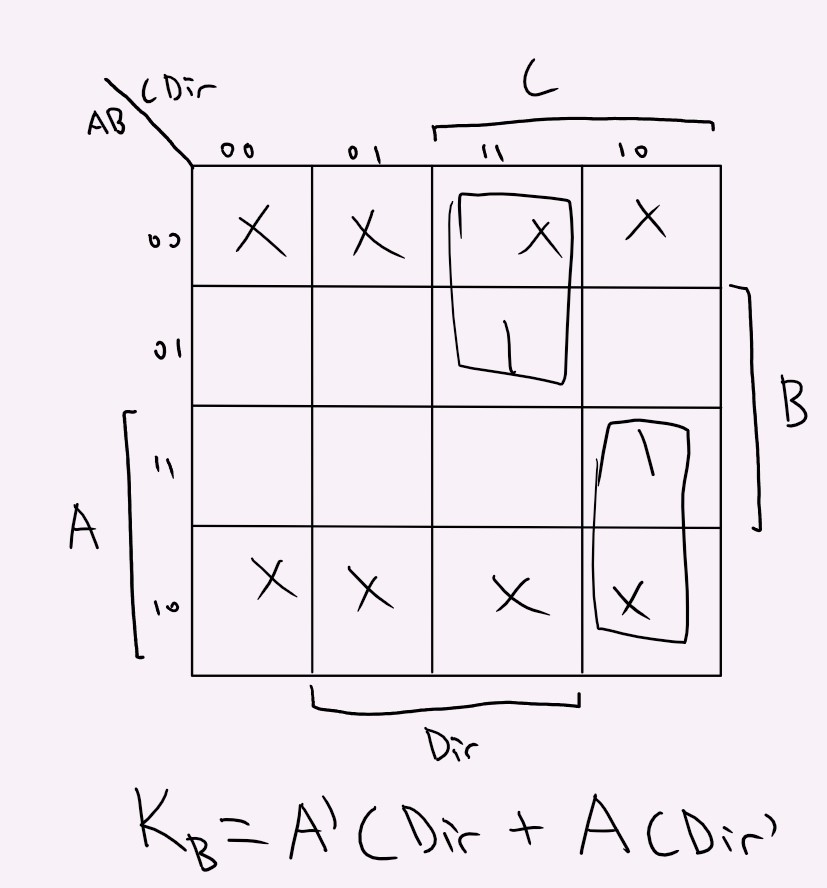 C Dir
C
AB
00 01 11 10
00 X X X X
01 1
B
11 1
A
10 X X X X
Dir
K_B = A' C Dir + A C Dir'